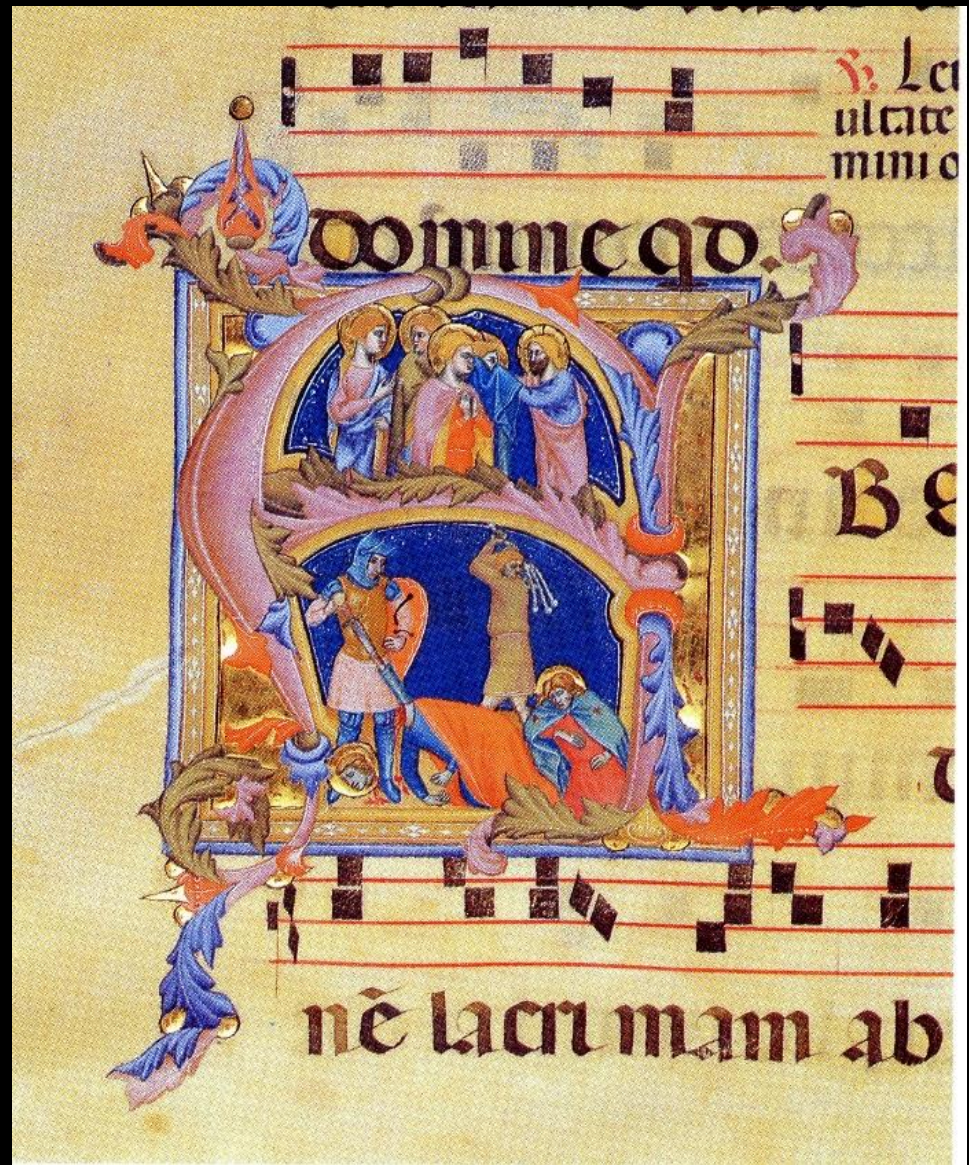 ℣. Le
ultate
mini o
domine qd.
A B S
nē lacrimam ab